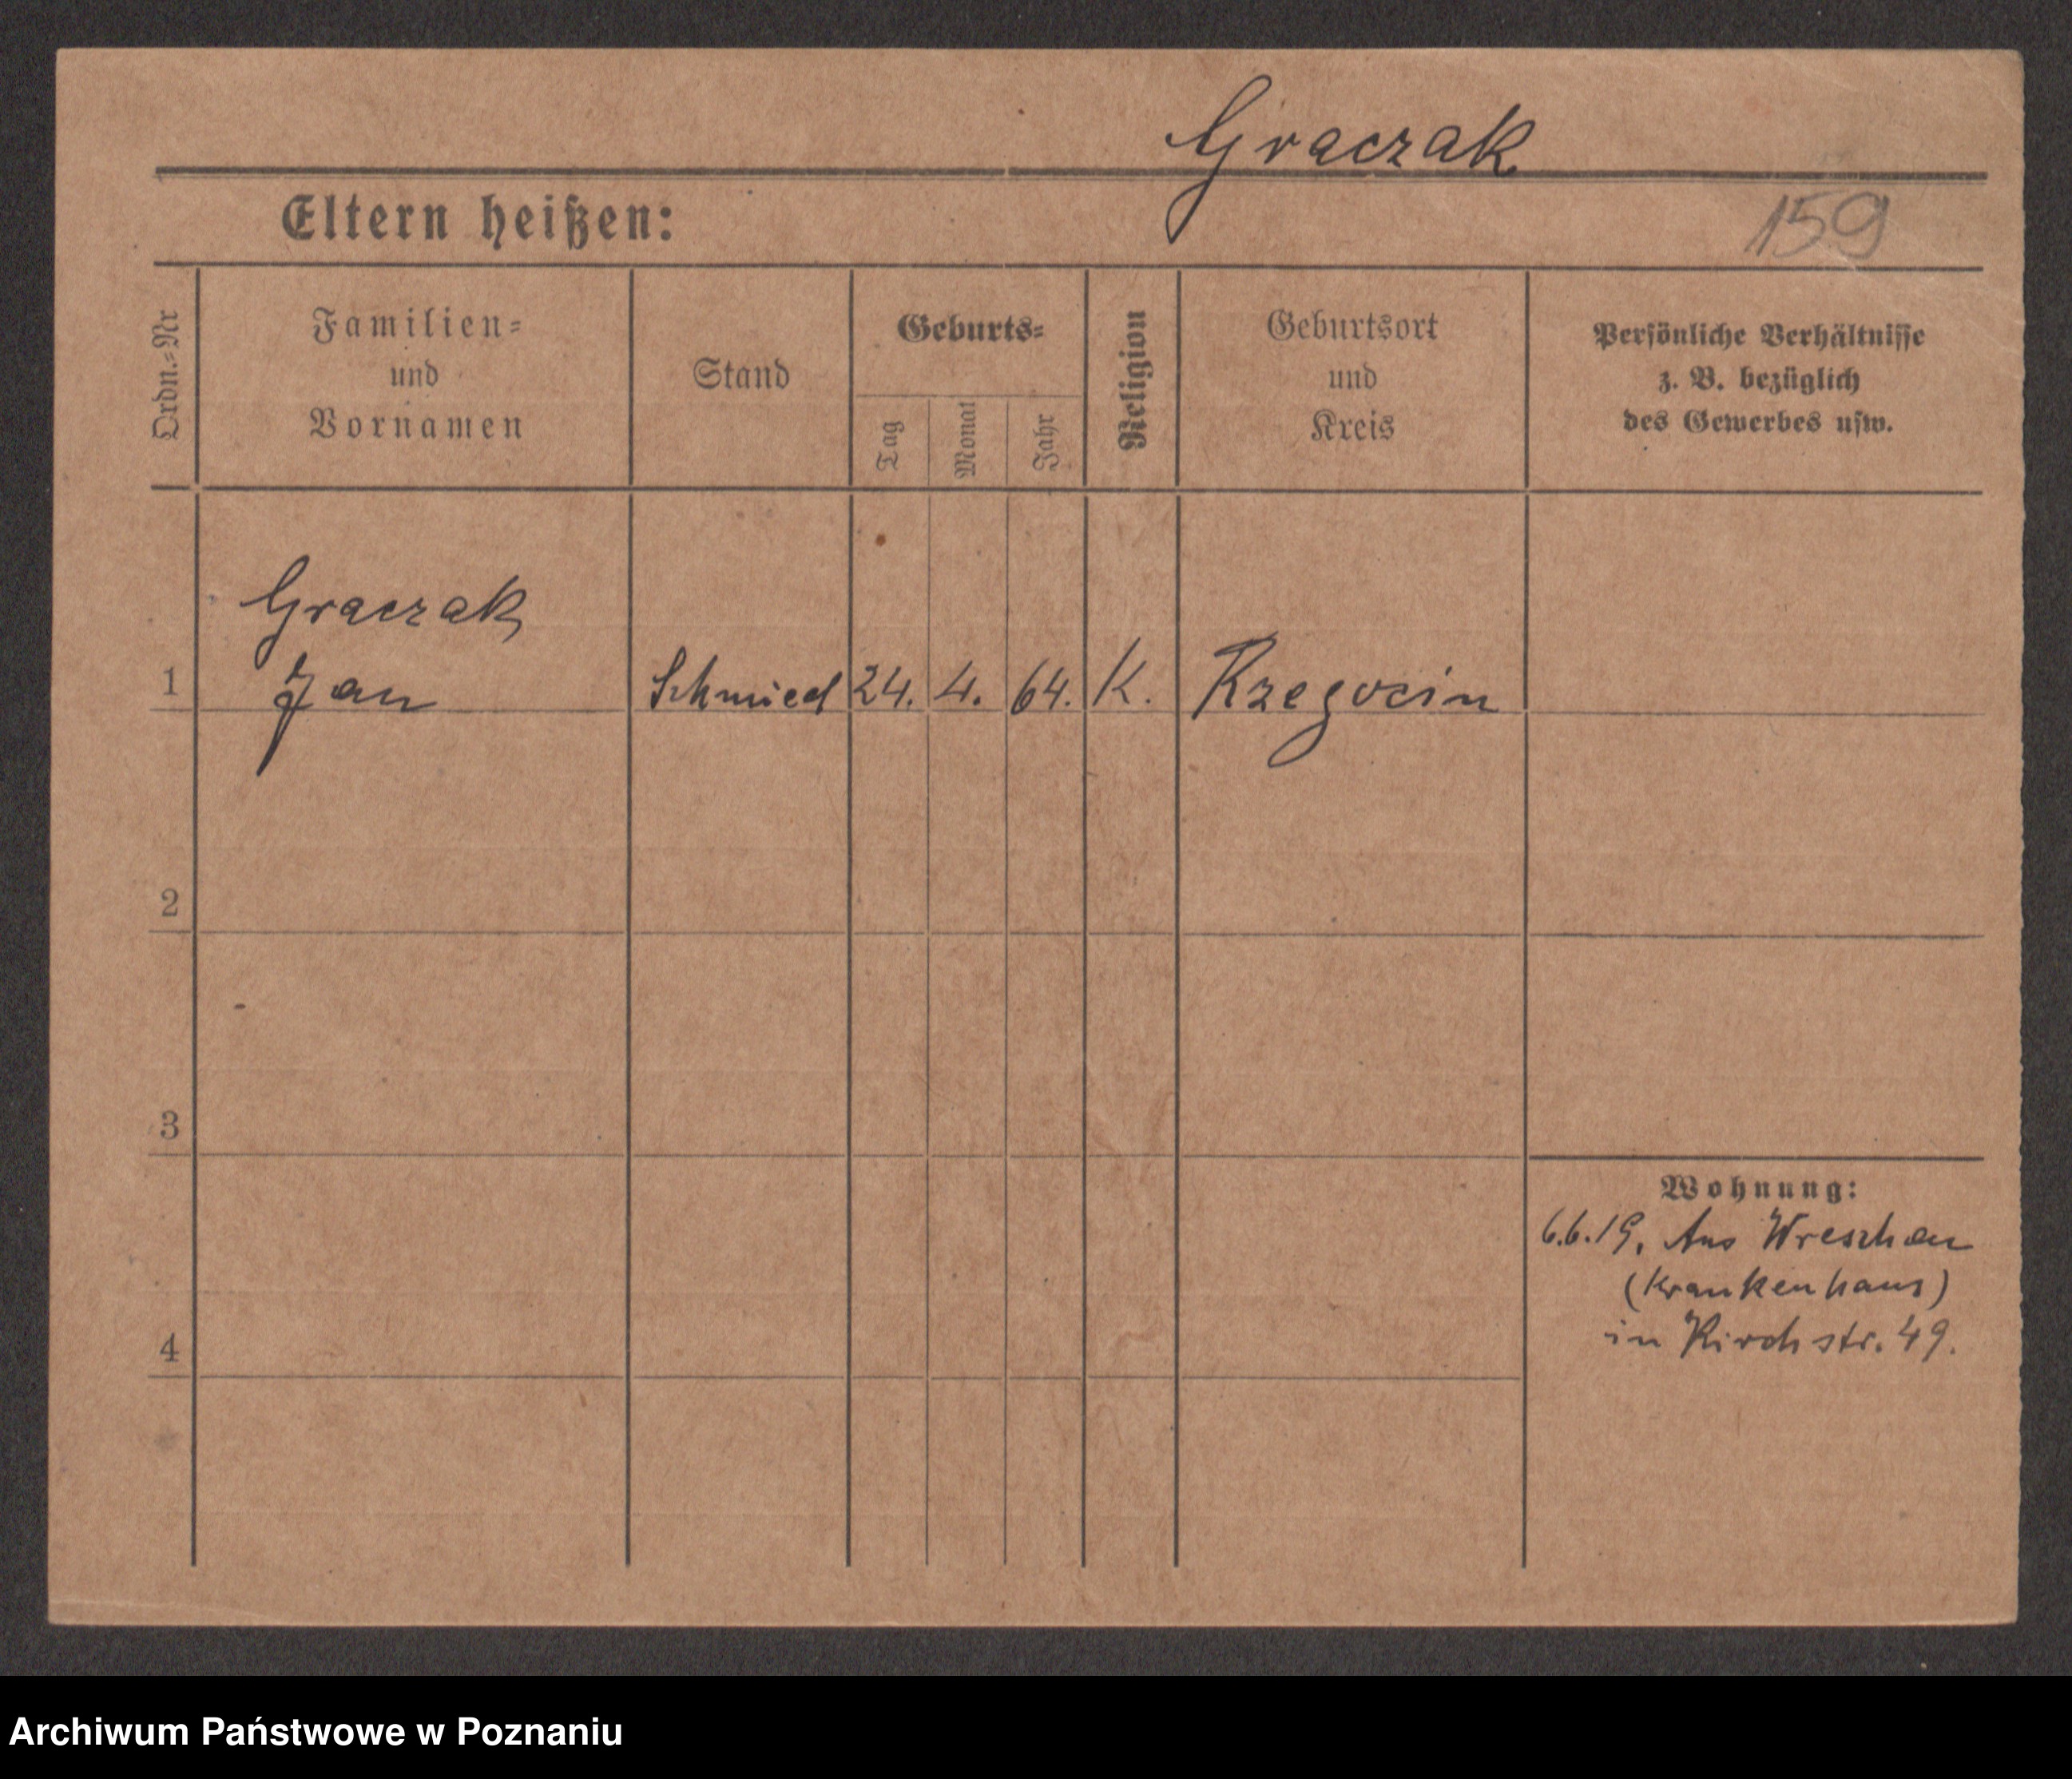 Graczak
159
Eltern heißen:
Ordn.=Nr
Familien=
und
Vornamen
Stand
Geburts=
Tag
Monat
Jahr
Religion
Geburtsort
und
Kreis
Persönliche Verhältnisse
z. B. bezüglich
des Gewerbes usw.
Graczak
1 Jan Schmied 24. 4. 64. K. Rzegocin
2
3
4
Wohnung:
6.6.19. Aus Wreschen
(Krankenhaus)
in Kirchstr. 49.
Archiwum Państwowe w Poznaniu